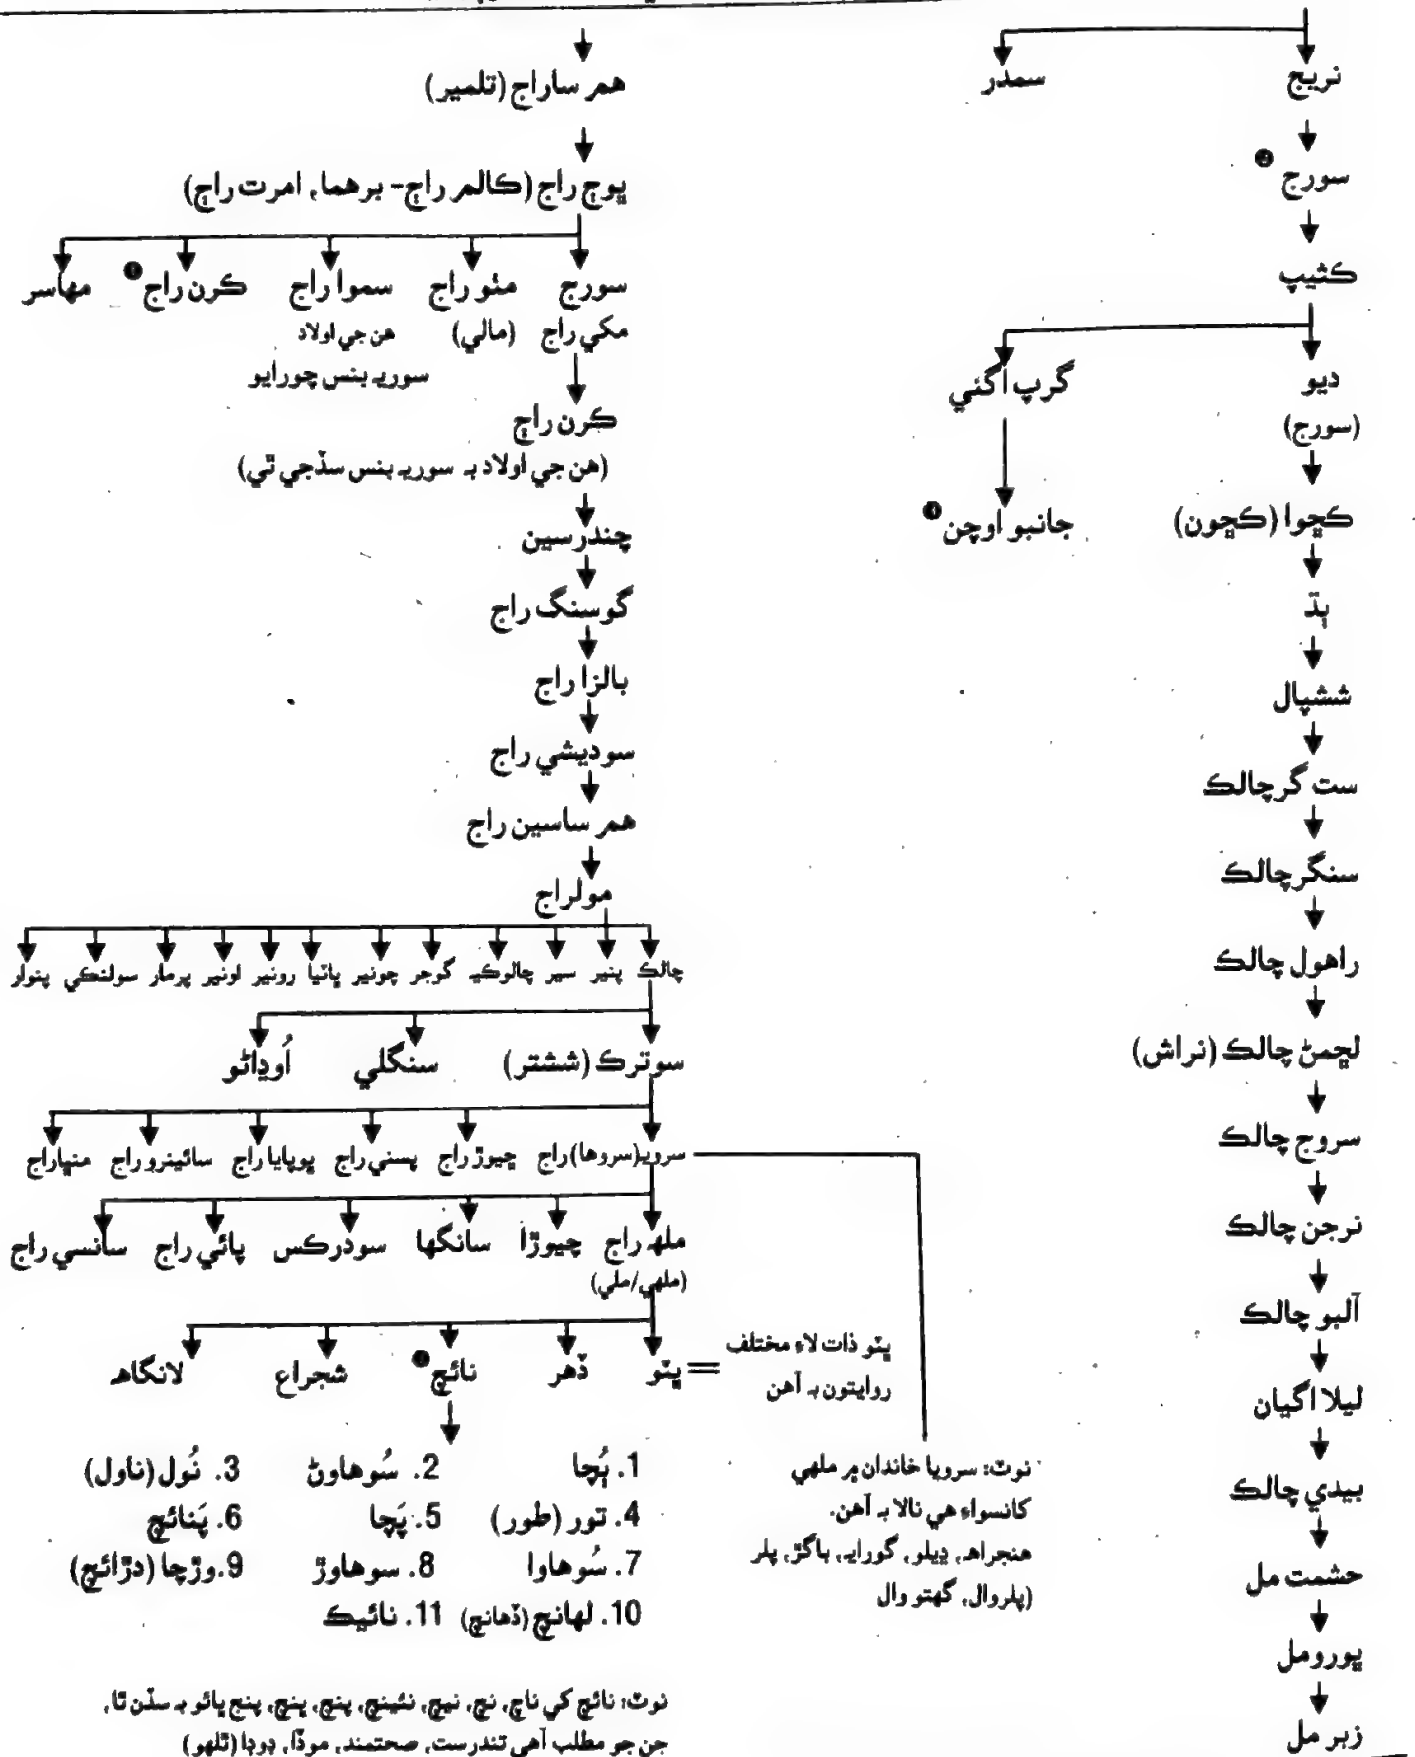 نريج
سمڊر
سورج
ڪثيپ
ديو
(سورج)
گرپ اگئي
ڪڇوا (ڪڇون)
جانبو اوچن
ٻڌ
ششپال
ست گرچالڪ
سنگرچالڪ
راهول چالڪ
لڇمڻ چالڪ (نراش)
سروج چالڪ
نرجن چالڪ
آلبو چالڪ
ليلا اگيان
بيدي چالڪ
حشمت مل
پورومل
زبر مل
همر ساراج (تلمير)
ڀوڄ راج (ڪالمر راج- برهما، امرت راج)
سورج
مڻو راج
سموا راج
ڪرن راج
مهاسر
مکي راج
(مالي)
هن جي اولاد
سوريه بنس چورايو
ڪرن راج
(هن جي اولاد به سوريه بنس سڏجي ٿي)
چندرسين
گوسنگ راج
بالزا راج
سوديشي راج
همر ساسين راج
مولراج
چالڪ پنير سير چالوڪيه گوجر چونير ڀاٽيا رونير لونير پرمار سولنڪي پنوار
سوترڪ (ششتر) سنگلي اُوڍاڻو
سرويه(سروها)راج ڇيوڙ راج پسني راج ڀوپايا راج سائينرو راج منڀاراج
ملهه راج چيوڙا سانگها سوڌرڪس پائي راج سانسي راج
(ملهي/ملي)
ڀٽو ڏهر نائچ شجراع لانگاهه
ڀٽو ذات لاءِ مختلف
روايتون به آهن
1. ٻُچا 2. سُوهاوڻ 3. نُول (ناول)
4. تور (طور) 5. پَچا 6. پَنائچ
7. سُوهاوا 8. سوهاوڙ 9. وڙچا (دڙائچ)
10. لهانچ (ڏهانچ) 11. نائيڪ
نوٽ: سرويا خاندان ۾ ملهي
کانسواءِ هي نالا به آهن.
هنجراهه، ڍيلو، گورايه، باگڙ، پلر
(پلروال، گهتو وال
نوٽ: نائچ کي ناچ، نچ، نيچ، نئينچ، پنچ، ڀنچ، پنج ڀائو به سڏن ٿا،
جن جو مطلب آهي تندرست، صحتمند، موڏا، ڊوڊا (ٿلهو)